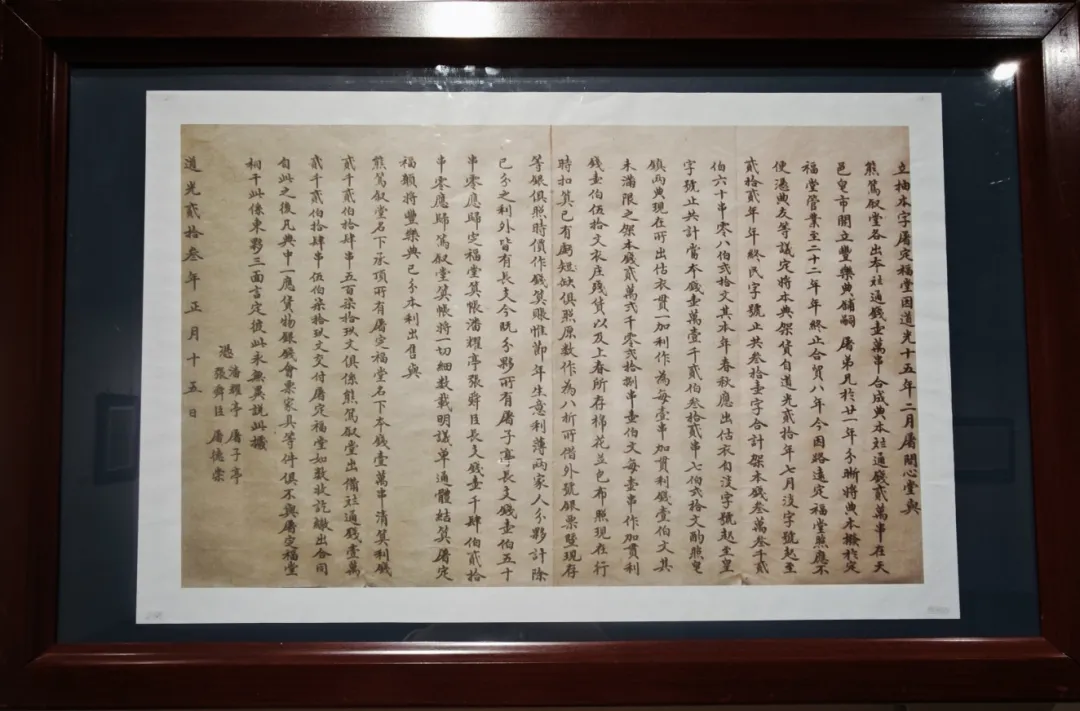 立抽本字屠定福堂因道光十五年二月屠開心堂與
熊篤叙堂各出本社通錢壹萬串合成典本社通錢貳萬串在天
邑皇市開立豐樂典舖嗣 屠弟兄於廿一年分晰將典本撥於定
福堂管業至二十二年年終止合貿八年今因路遠定福堂照應不
便憑典友等議定將本典架貨自道光貳拾年七月沒字號起至
貳拾貳年年終民字號止共叁拾壹字合計架本錢叁萬叁千貳
伯六十串零八伯弍拾文其本年春秋應出估衣自沒字號起至皇
字號止共計當本錢壹萬壹千貳伯叁拾貳串七伯弍拾文酌照皂
鎮兩典現在所出估衣貫一加利作為每壹串加貫利錢壹伯文其
未滿限之架本錢貳萬弍千零弍拾捌串壹伯文每壹串作加貫利
錢壹伯伍拾文衣庄殘貨以及上春所存棉花並包布照現在行
時扣算已有虧短缺俱照原數作為八折所借外號銀票暨現存
等銀俱照時價作錢算賬惟節年生意利薄兩家人分夥計除
已分之利外皆有長支今既分夥所有屠子亭長支錢壹伯五十
串零應歸定福堂算帳潘耀亭張舜臣長支錢壹千肆伯貳拾
串零應歸篤叙堂算帳將一切細数載明議單通體結算屠定
福願將豐樂典已分本利出售與
熊篤叙堂名下承頂所有屠定福堂名下本錢壹萬串清算利錢
貳千貳伯拾肆串五百柒拾玖文俱係熊篤叙堂出備社通錢壹萬
貳千貳伯拾肆串伍伯柒拾玖文交付屠定福堂如数收訖繳出合同
自此之後凡典中一應貨物銀錢會票家具等件俱不與屠定福堂
相干此係東夥三面言定彼此永無異說此據
憑 潘耀亭 屠子亭
張舜臣 屠德崇
道光貳拾叁年正月十五日